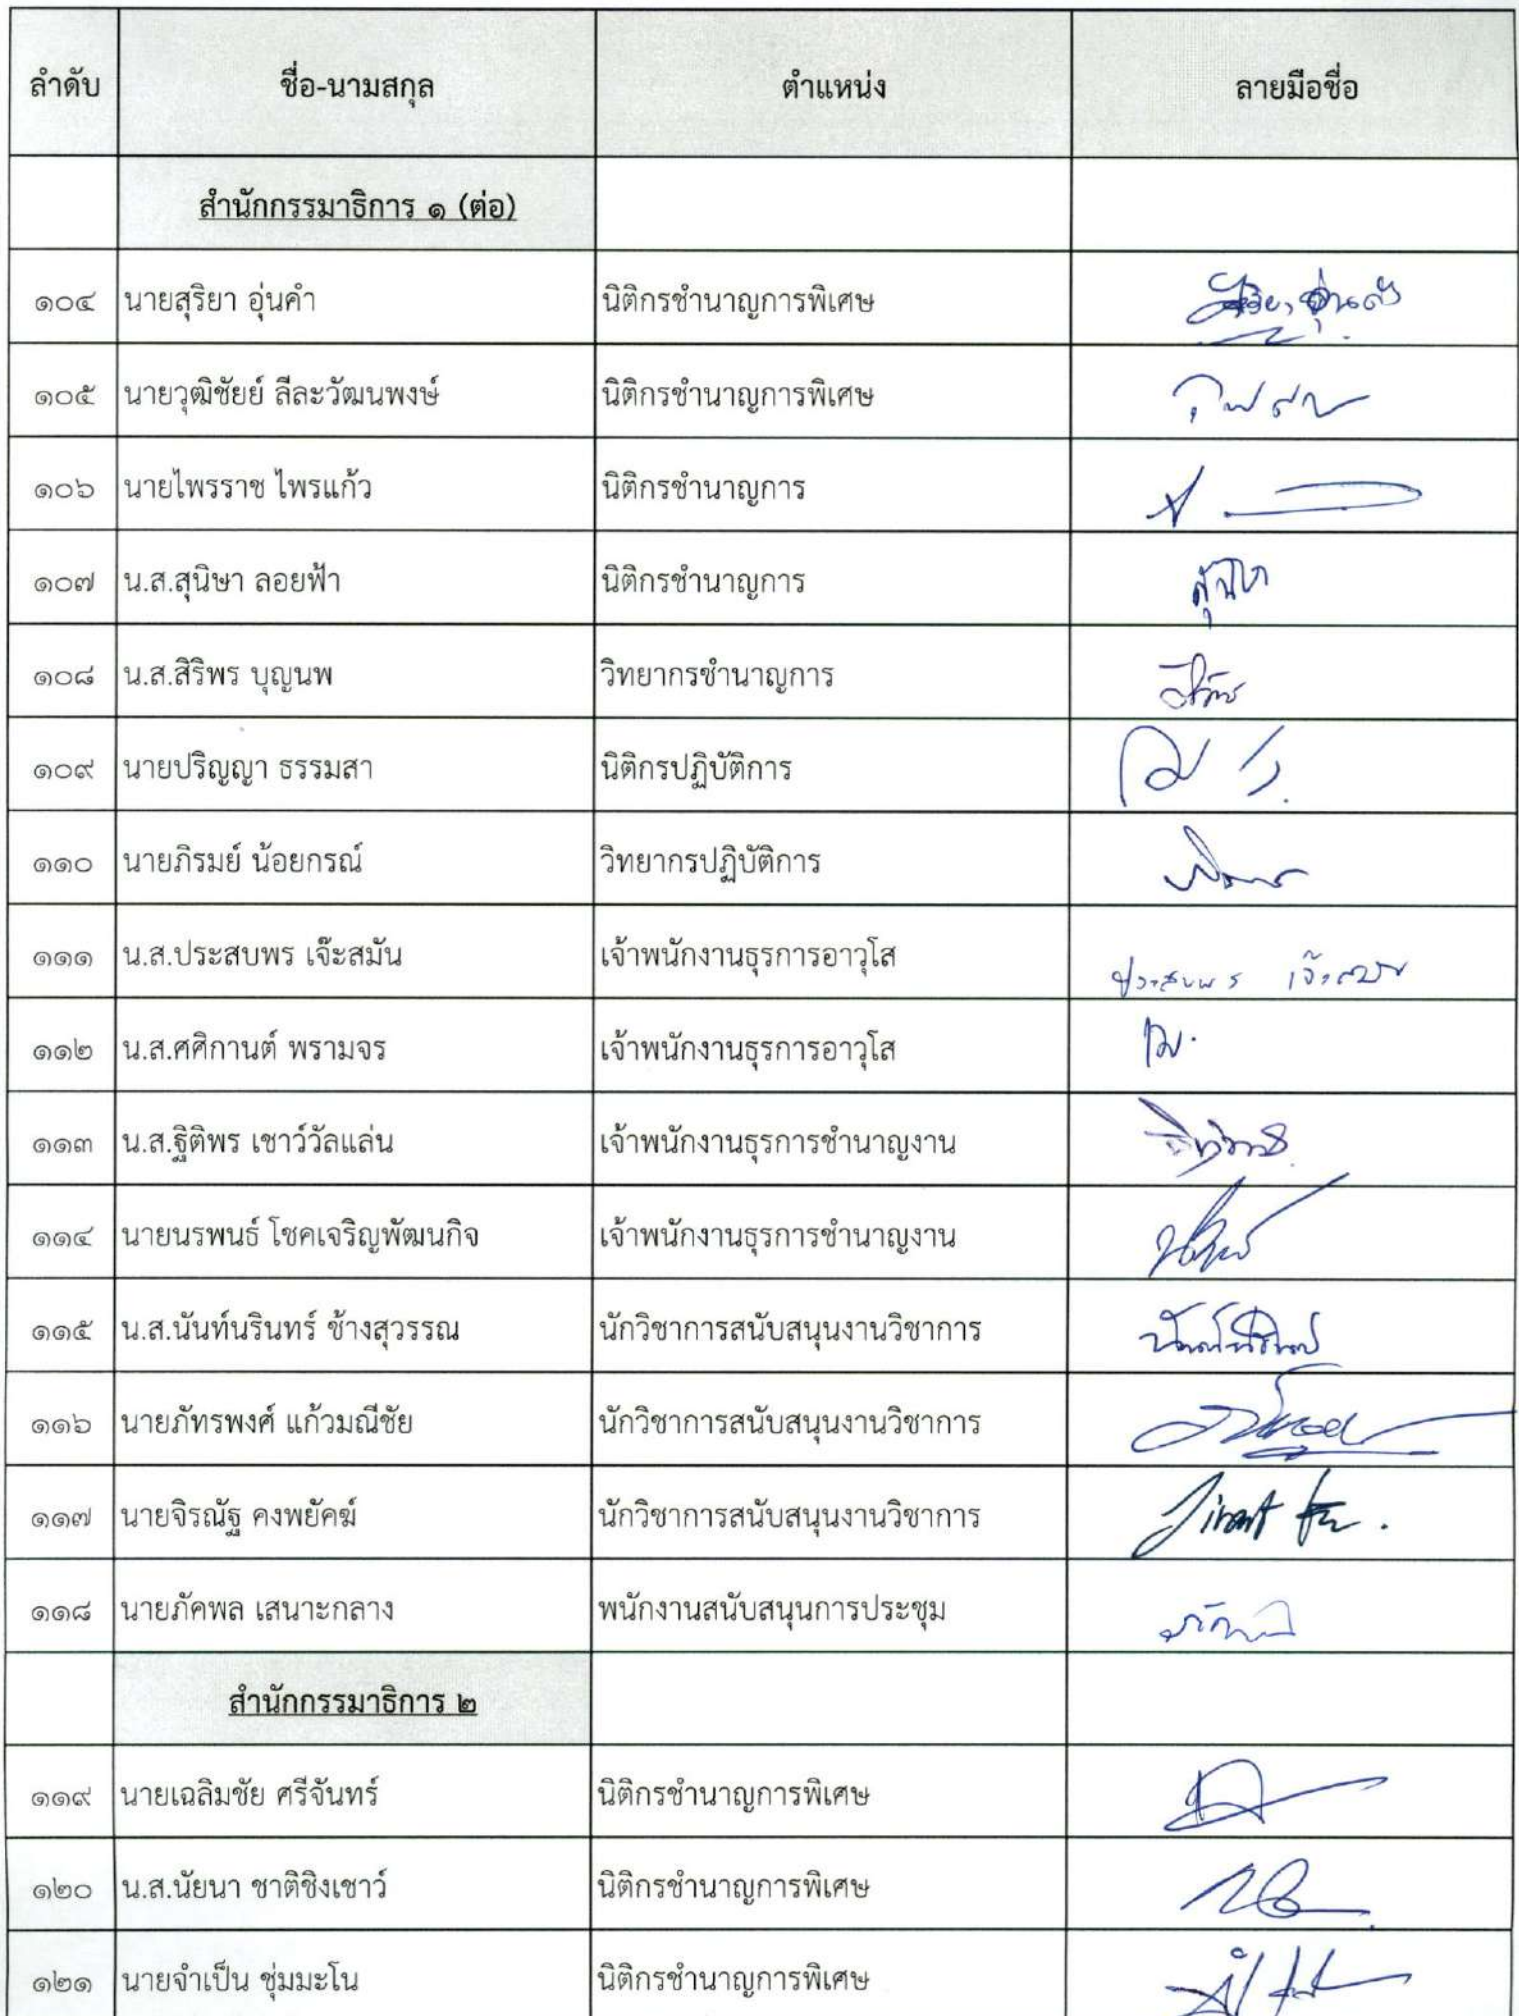 ลำดับ ชื่อ-นามสกุล ตำแหน่ง ลายมือชื่อ
สำนักกรรมาธิการ ๑ (ต่อ)
๑๐๔ นายสุริยา อุ่นคำ นิติกรชำนาญการพิเศษ
๑๐๕ นายวุฒิชัยย์ ลีละวัฒนพงษ์ นิติกรชำนาญการพิเศษ
๑๐๖ นายไพรราช ไพรแก้ว นิติกรชำนาญการ
๑๐๗ น.ส.สุนิษา ลอยฟ้า นิติกรชำนาญการ
๑๐๘ น.ส.สิริพร บุญนพ วิทยากรชำนาญการ
๑๐๙ นายปริญญา ธรรมสา นิติกรปฏิบัติการ
๑๑๐ นายภิรมย์ น้อยกรณ์ วิทยากรปฏิบัติการ
๑๑๑ น.ส.ประสบพร เจ๊ะสมัน เจ้าพนักงานธุรการอาวุโส ประสบพร
๑๑๒ น.ส.ศศิกานต์ พรามจร เจ้าพนักงานธุรการอาวุโส
๑๑๓ น.ส.ฐิติพร เชาว์วัลแล่น เจ้าพนักงานธุรการชำนาญงาน
๑๑๔ นายนรพนธ์ โชคเจริญพัฒนกิจ เจ้าพนักงานธุรการชำนาญงาน
๑๑๕ น.ส.นันท์นรินทร์ ช้างสุวรรณ นักวิชาการสนับสนุนงานวิชาการ
๑๑๖ นายภัทรพงศ์ แก้วมณีชัย นักวิชาการสนับสนุนงานวิชาการ
๑๑๗ นายจิรณัฐ คงพยัคฆ์ นักวิชาการสนับสนุนงานวิชาการ
๑๑๘ นายภัคพล เสนาะกลาง พนักงานสนับสนุนการประชุม
สำนักกรรมาธิการ ๒
๑๑๙ นายเฉลิมชัย ศรีจันทร์ นิติกรชำนาญการพิเศษ
๑๒๐ น.ส.นัยนา ชาติชิงเชาว์ นิติกรชำนาญการพิเศษ
๑๒๑ นายจำเป็น ชุ่มมะโน นิติกรชำนาญการพิเศษ